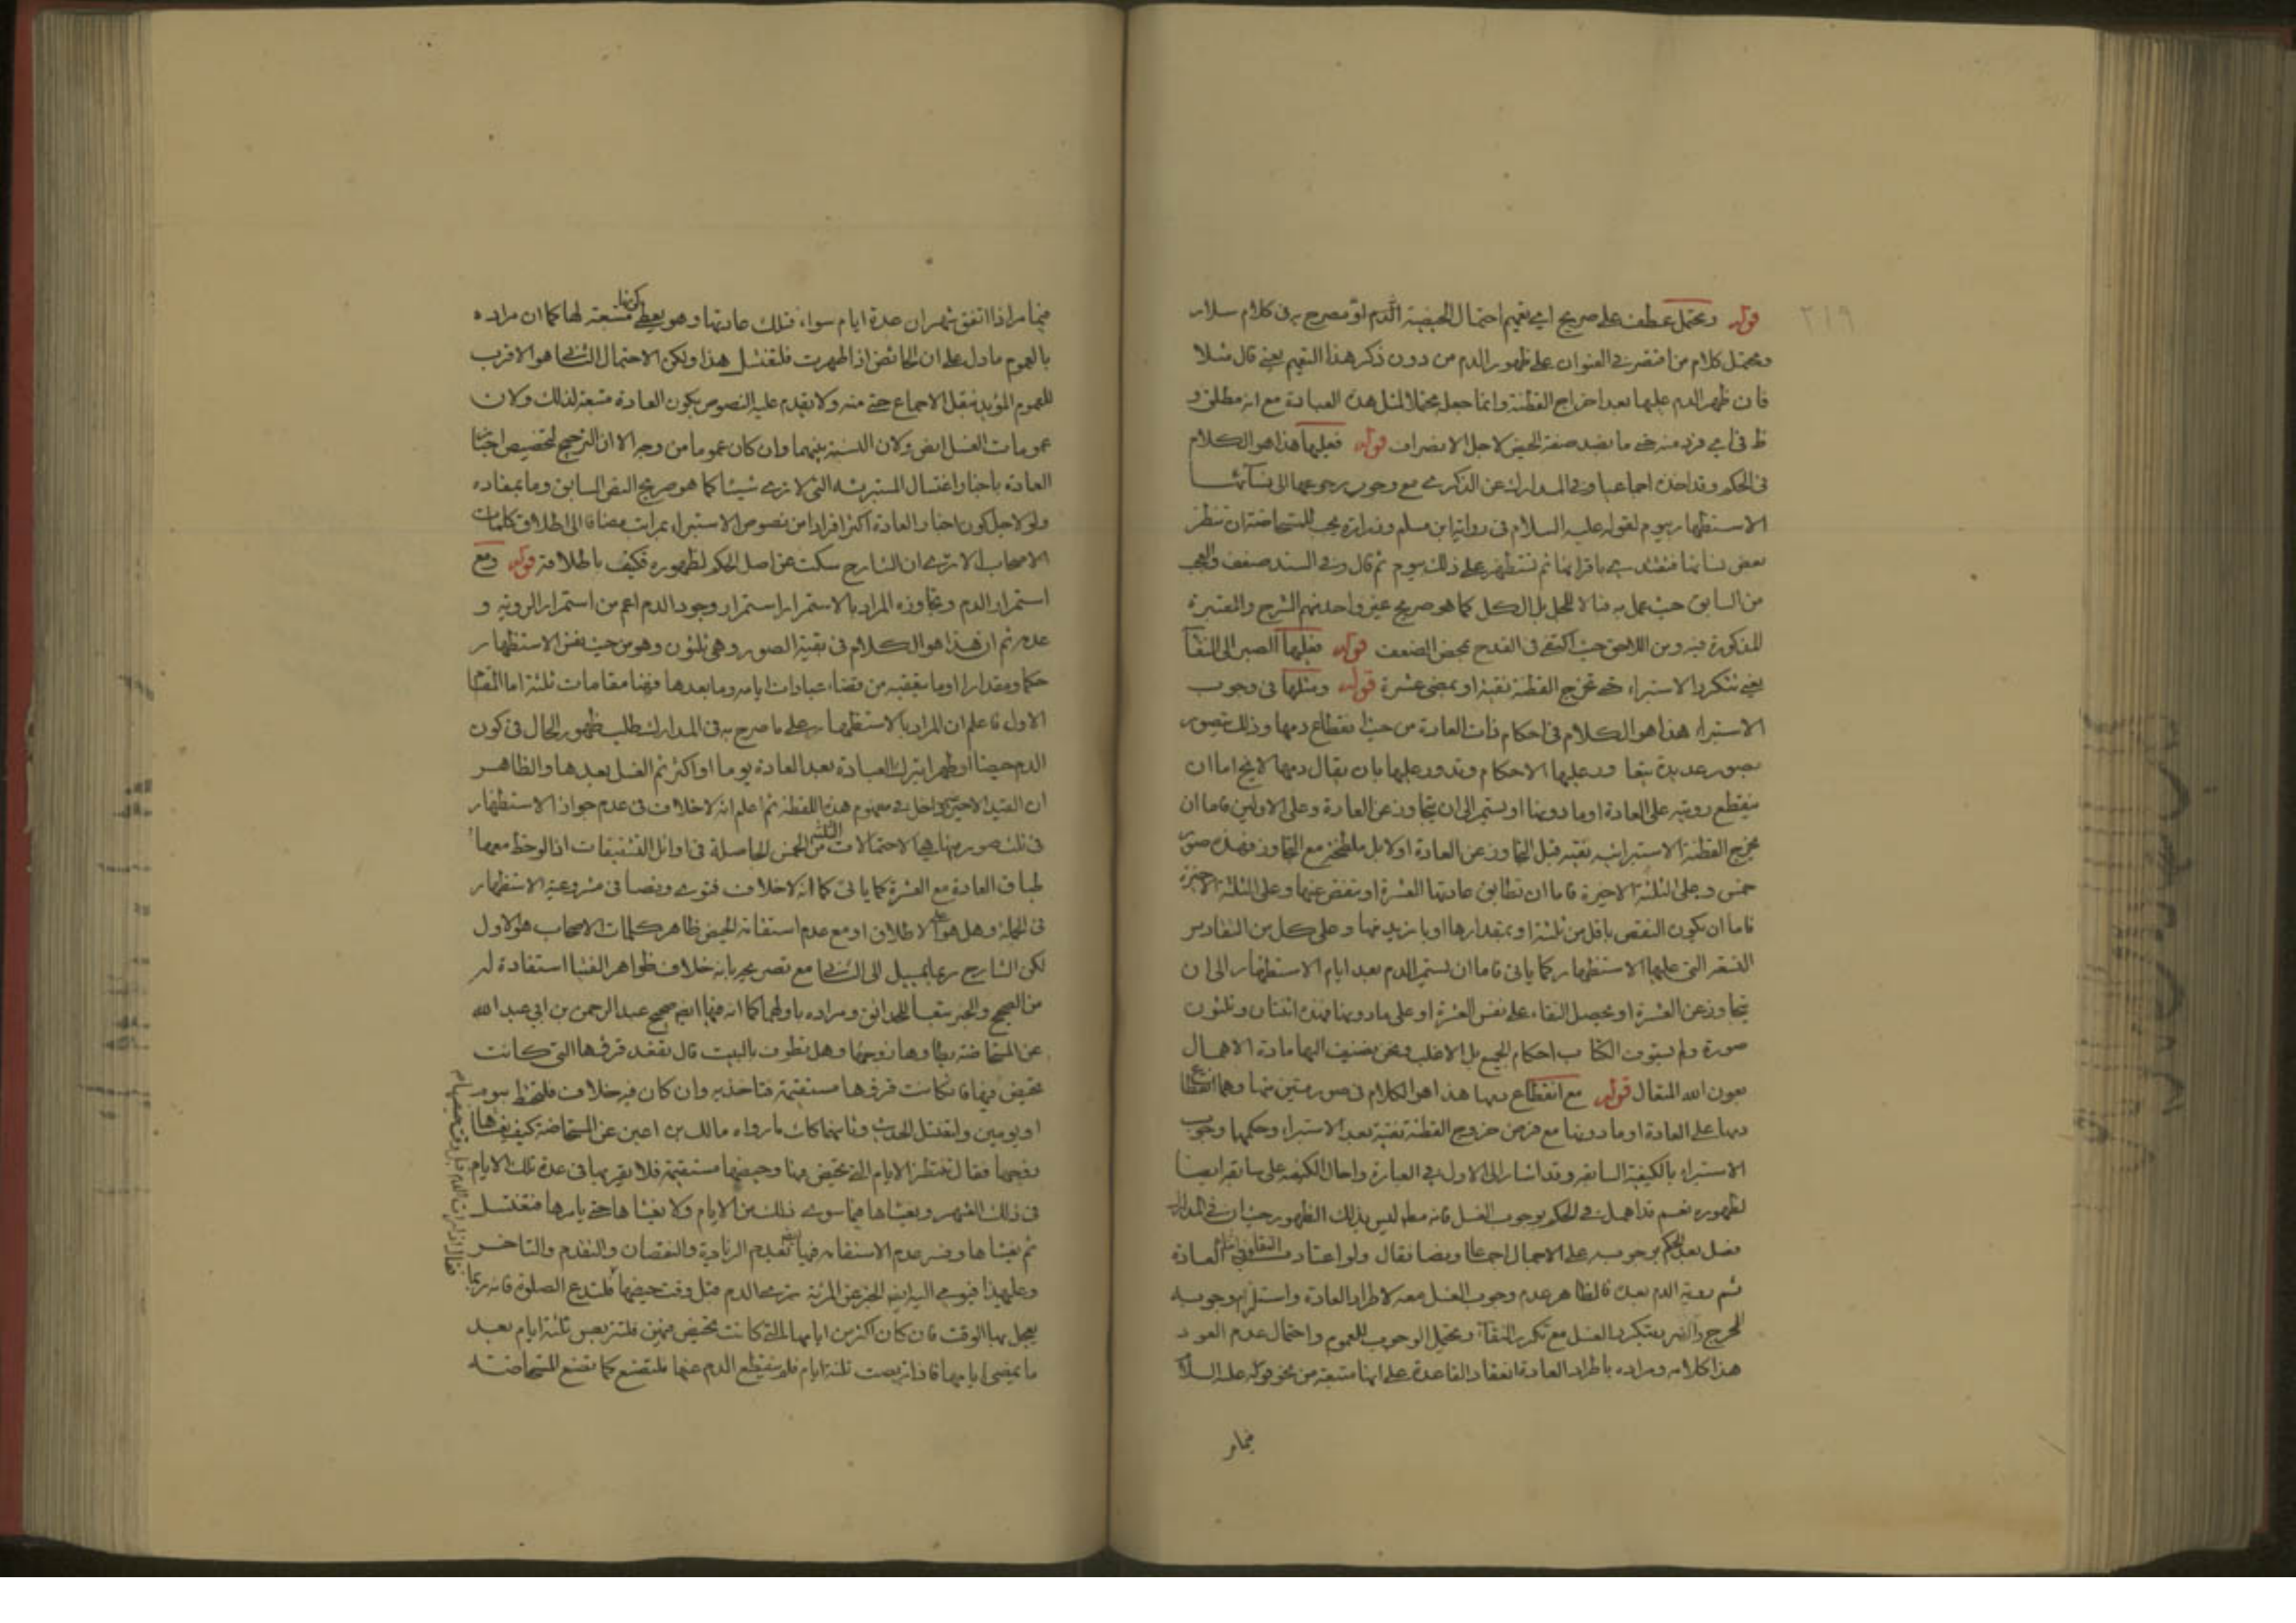 ٢١٩
قوله ويحتمل عطف على صريح اي تعميم احتمال الحيضية الدم او مصرح به في كلام سلار
ويحتمل كلام من اقتصر في العنوان على ظهور الدم من دون ذكر هذا التعميم يعني قال مثلا
فان ظهر الدم عليها بعد اخراج القطنة وانما جعله محتملا لمثل هذه العبادة مع انه مطلق و
ظ في اي فرد منه حتى ما بضد صفة الحيض لاجل الانصراف قوله فعليها هذا هو الكلام
في الحكم وقد اخذه اجماعيا وفي المدارك عن الذكرى مع وجوب رجوعها الى نسائها
الاستظهار بيوم لقوله عليه السلام في رواية ابن مسلم وزرارة يجب للمستحاضة ان تنظر
بعض نسائها فتقتدي باقرائها ثم تستظهر على ذلك بيوم ثم قال وفي السند ضعف والعجب
من السابق حيث عمل به مثلا للجل بل الكل كما هو صريح غير واحد منهم الشرح والمعتبرة
المذكورة فيه ومن اللاحق حيث اكتفى في القدح بمحض الضعف قوله فعليها الصبر الى النقا
يعني تتكرر الاستبراء حتى تخرج القطنة نقية او بمضي عشرة قوله ومثلها في وجوب
الاستبراء هذا هو الكلام في احكام ذات العادة من حيث انقطاع دمها وذلك يتصور
بصور عديدة يتفاوت عليها الاحكام وتدور عليها بان يقال دمها لا يخ اما ان
ينقطع رويته على العادة او ما دونها او يستمر الى ان يتجاوز عن العادة وعلى الاولين فاما ان
تخرج القطنة الاستبرائية نقية قبل التجاوز عن العادة اولا بل ملطخة مع التجاوز فهذه صور
خمس وعلى الثلثة الاخيرة فاما ان تطابق عادتها العشرة او تنقص عنها وعلى الثلثة الاخيرة
فاما ان يكون النقص باقل من ثلثة او بمقدارها او بازيد منها وعلى كل من التقادير
التسعة التي عليها الاستظهار كما ياتي فاما ان يستمر الدم بعد ايام الاستظهار الى ان
يتجاوز عن العشرة او يحصل النقاء على نفس العشرة او على ما دونها فهذه اثنتان وثلثون
صورة ولم يستوف الكتاب احكام الجميع بل الاغلب ونحن نضيف اليها مادة الاهمال
بعون الله المتعال قوله مع انقطاع دمها هذا هو الكلام في صورتين منها وهما انقطاع
دمها على العادة او ما دونها مع فرض خروج القطنة نقية بعد الاستبراء وحكمها وجوب
الاستبراء بالكيفية السابقة وقد اشار الى الاول في العبارة واحال الكيفية على سابقه ايضا
لظهوره نعم قد اهمل في الحكم بوجوب الغسل فانه مطم ليس بذلك الظهور حيث ان في المدارك
فصل بعد الحكم بوجوبه على الاجمال اجماعا ونصا فقال ولو اعتاد النقا في اثناء العادة
ثم روية الدم بعده فالظاهر عدم وجوب الغسل معه لاطراد العادة واستلزام وجوبه
الحرج والضرر بتكرر الغسل مع تكرر النقا ويحتمل الوجوب للعموم واحتمال عدم العود
هذا كلامه ومراده باطراد العادة انعقاد القاعدة على انها متبعة من نحو قوله عليه السلام
فيما مر
فيما مر اذا اتفق شهران عدة ايام سواء فتلك عادتها وهو يعطي كونها متبعة لها كما ان مراده
بالعموم ما دل على ان الحائض اذا طهرت فلتغتسل هذا ولكن الاحتمال الثاني هو الاقرب
للعموم المؤيد بنقل الاجماع حتى منه ولا يقدم عليه النصوص بكون العادة متبعة لذلك ولان
عمومات الغسل ايض ولان النسبة بينهما وان كان عموما من وجه الا ان الترجيح لتخصيص اخبار
العادة باخبار اغتسال المستبرئة التي لا ترى شيئا كما هو صريح النص السابق وما بمفاده
ولو لاجل كون اخبار العادة اكثر افرادا من نصوص الاستبراء بمراتب مضافا الى اطلاق كلمات
الاصحاب الا ترى ان الشارح سكت عن اصل الحكم لظهوره فكيف باطلاقه قوله ومع
استمرار الدم وتجاوزه المراد بالاستمرار استمرار وجود الدم اعم من استمرار الروية و
عدمه ثم ان هذا هو الكلام في بقية الصور وهي ثلثون وهو من حيث نفس الاستظهار
حكما ومقدارا او ما يتعقبه من قضاء عبادات ايامه وما بعدها فهنا مقامات ثلثة اما المقام
الاول فاعلم ان المراد بالاستظهار على ما صرح به في المدارك طلب ظهور الحال في كون
الدم حيضا او طهرا بترك العبادة بعد العادة يوما او اكثر ثم الغسل بعدها والظاهر
ان القيد الاخير داخل في مفهوم هذه اللفظة ثم اعلم انه لا خلاف في عدم جواز الاستظهار
في تلك صور منها هي الاحتمالات الثلثة من الخمس الحاصلة في اوائل التشقيقات اذا لوحظ معها
طباق العادة مع العشرة كما ياتي كما انه لا خلاف فتوى ونصا في مشروعية الاستظهار
في الجملة وهل هو على الاطلاق او مع عدم استقامة الحيض ظاهر كلمات الاصحاب هو الاول
لكن الشارح ربما يميل الى الثاني مع تصريحه بانه خلاف ظواهر الفتيا استفادة له
من الصحيح والخبر تبعا للحدائق ومراده باولهما كما انه فيها ايضه صحيح عبد الرحمن بن ابي عبد الله
عن المستحاضة يطاوها زوجها وهل تطوف بالبيت قال تقعد قرؤها التي كانت
تحيض فيها فان كانت قرؤها مستقيمة فتاخذ به وان كان فيه خلاف فلتحتط بيوم
او يومين ولتغتسل الحديث وثانيهما كان ما رواه مالك بن اعين عن المستحاضة كيف يغشاها
زوجها فقال تنتظر الايام التي تحيض فيها وحيضها مستقيمة فلا يقربها في عدة تلك الايام
في ذلك الشهر ويغشاها فيما سوى ذلك من الايام ولا يغشاها حتى يامرها فتغتسل
ثم يغشاها وفسر عدم الاستقامة فيها بتقديم الزيادة والنقصان والتقدم والتاخر
وعليهذا فيومي اليه ايضه الخبر عن المرئة ترى الدم قبل وقت حيضها فلتدع الصلوة فانه ربما
يعجل بها الوقت فان كان اكثر من ايامها التي كانت تحيض فيهن فلتتربص ثلثة ايام بعد
ما يمضي ايامها فاذا تربصت ثلثة ايام فلم ينقطع الدم عنها فلتصنع كما تصنع المستحاضة
فقال اذا رات الدم قبل وقت حيضها